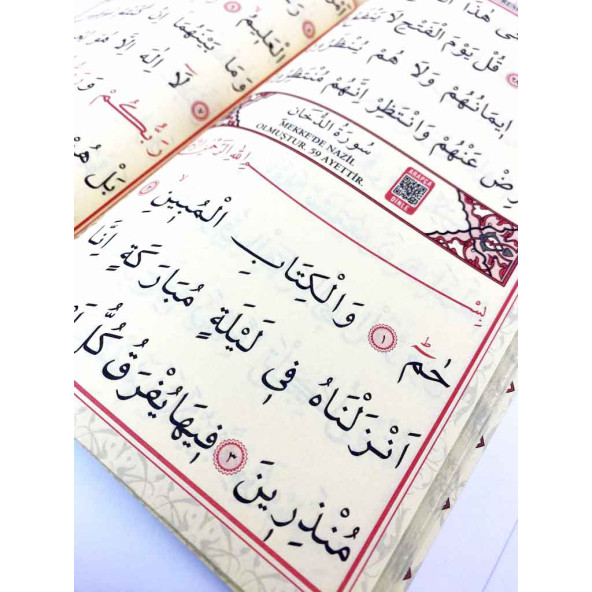 هٰذَا
قُلْ يَوْمَ الْفَتْحِ لَا يَنْفَعُ
ا۪يمَانُهُمْ وَلَا هُمْ يُنْظَرُونَ
عَنْهُمْ وَانْتَظِرْ اِنَّهُمْ مُنْتَظِرُونَ
سُورَةُ الدُّخَانِ
MEKKE'DE NAZİL
OLMUŞTUR. 59 AYETTİR.
ARAPÇA
DİNLE
بِسْمِ اللهِ الرَّحْمٰنِ الرَّحِيمِ
حٰمٓ ﴿١﴾ وَالْكِتَابِ الْمُب۪ينِ
اَنْزَلْنَاهُ ف۪ي لَيْلَةٍ مُبَارَكَةٍ اِنَّا
مُنْذِر۪ينَ ﴿٣﴾ ف۪يهَا يُفْرَقُ كُلُّ
الْعَل۪يمُ
وَمَا بَيْنَهُمَا
لَٓا اِلٰهَ اِلَّا هُوَ
رَبُّكُمْ
بَلْ هُمْ